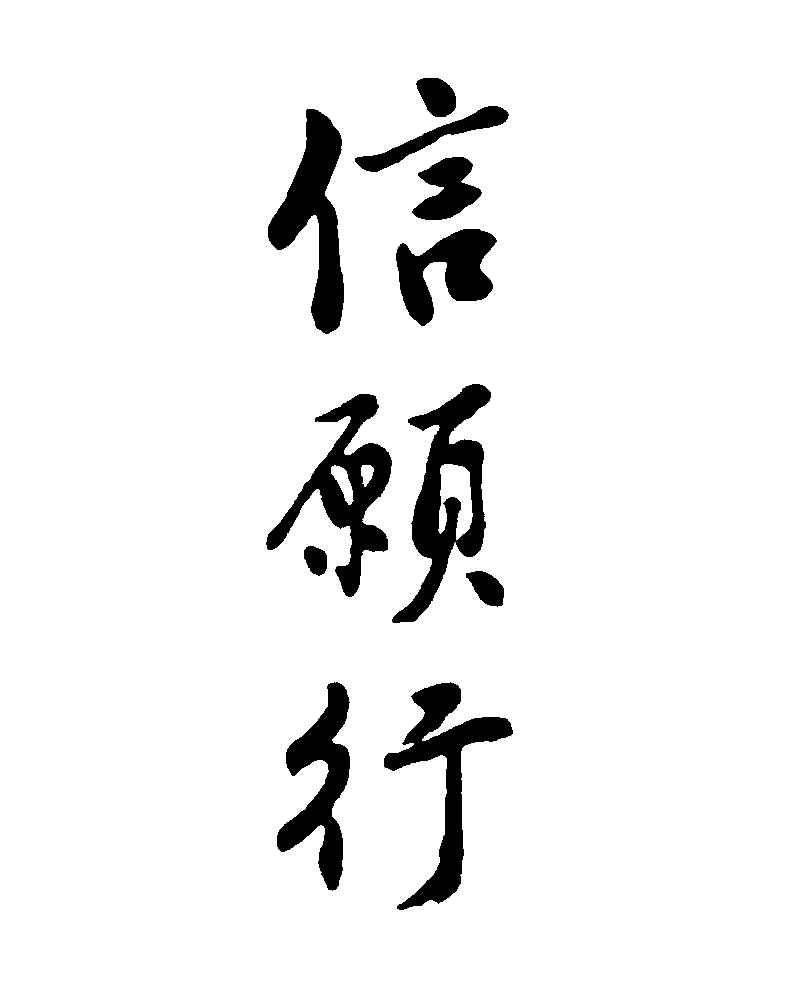 信願行